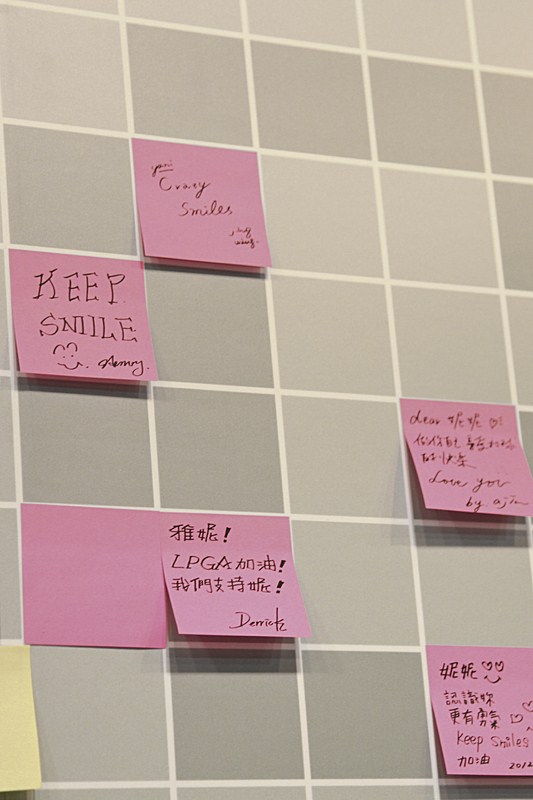 yani
Crazy
Smiles
KEEP
SMILE
dear 妮妮
做你自己
的快樂
Love you
by
雅妮!
LPGA加油!
我們支持妮!
Derrick
妮妮
認識妳
更有勇氣
Keep Smiles
加油 2012